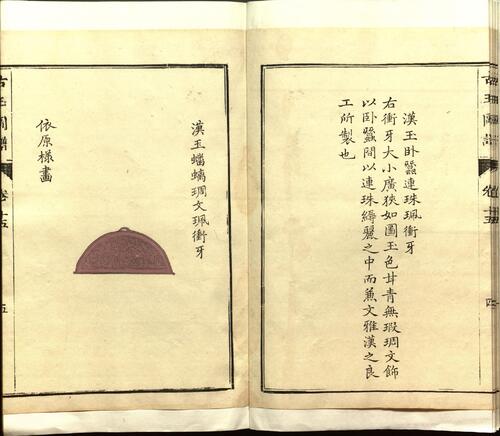 漢玉卧蠶連珠珮衝牙
右衝牙大小廣狹如圖玉色甘青無瑕琱文飾
以卧蠶間以連珠縟麗之中而蕪文雅漢之良
工所製也
古玉圖譜
卷十五
四
漢玉蟠螭琱文珮衝牙
依原樣畫
古玉圖譜
卷十五
五